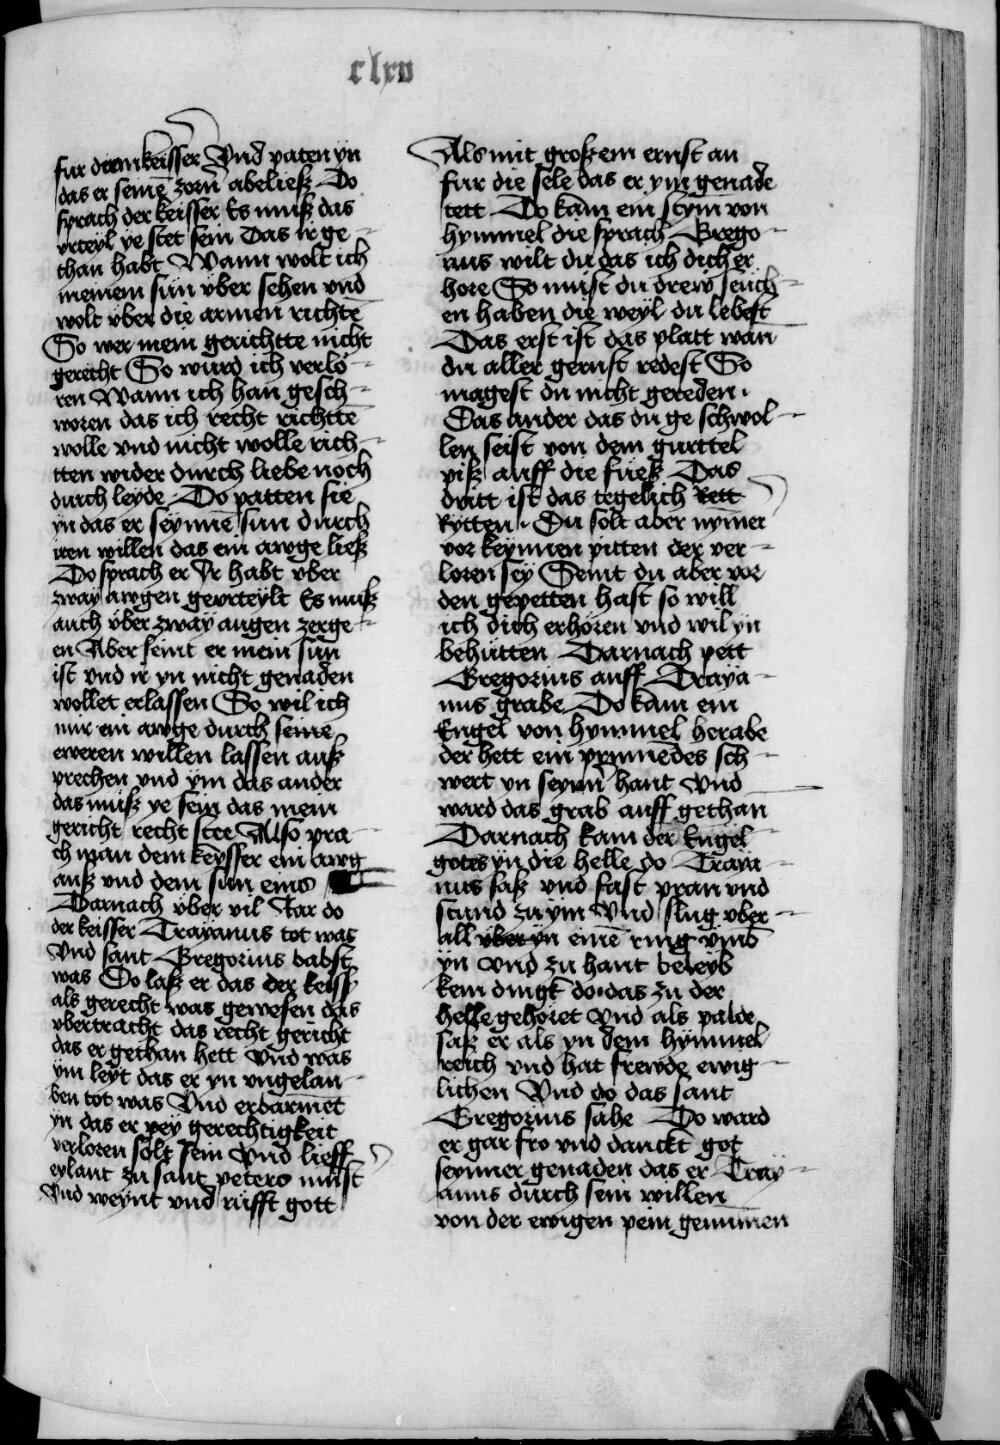 clxv
fur den keisser Vnd paten yn
das er seinē zorn̄ abeließ Do
sprach der keisser Es muß das
vrteyl ye stet sein Das ir ge-
than habt Wann wolt ich
meinem sün über sehen vnd
wolt über die armen richtē
So wer mein gerichtte nicht
gerecht So wurd ich verlo-
ren Wann ich han gesch-
woren das ich recht richttē
wolle vnd nicht wolle rich-
tten wider durch liebe noch
durch leyde Do patten sie
yn das er seynnē sun durch
iren willen das ein awge ließ
Do sprach er Ir habt vber
zway awgen gevrteylt Es muß
auch über zway augen zerge-
en Aber seint er mein sün
ist vnd ir yn nicht genaden
wollet erlassen So wil ich
mir ein awge durch seinē
eweren willen lassen auß
prechen vnd ym das ander
das muß ye sein das mein
gericht recht stee Also pra-
ch man dem keysser ein awg
auß vnd dem sun eins
Darnach über vil Iar do
der keisser Trayanus tot was
Vnd sant Gregorius babst
was Do laß er das der keiss
als gerecht was gewesen das
vbertracht das recht gericht
das er gethan hett Vnd was
ym leyt das er yn vngelau-
ben tot was Vnd erbarmet
yn das er pey gerechtigkeit
verloren solt sein Vnd lieff
eylant zu sant peters munst
Vnd weynt vnd rüfft gott
Als mit großem ernst an
fur die sele das er ym genade
tett Do kam ein stym von
hymmel die sprach Grego-
rius wilt du das ich dich er
hore So must du drew seüch-
en haben die weyl du lebest
Das erst ist das platt wan
du aller gernst redest So
magest du nicht gereden.
Das ander das du ge schwol-
len seist von dem gurttel
piß auff die füeß Das
dritt ist das tegelich Rett
Rytten. Du solt aber nymer
vor keynnen pitten der ver-
loren sey Seint du aber vor
den gepetten hast so will
ich dich erhören vnd wil yn
behütten Darnach pett
Gregorius auff Traya-
nus grabe Do kam ein
Engel von hymmel herabe
der hett ein prynnedes sch-
wert yn seynn̄ hant Vnd
ward das grab auff gethan
Darnach kam der Engel
gotes yn die helle do Traya-
nus saß vnd fast pran vnd
stund zu ym Vnd slug vber-
all über yn einē ring vmb
yn Vnd zu hant beleyb
kein dingk do das zu der
helle gehöret Vnd als palde
saß er als yn dem hymmel
reich vnd hat frewde ewig-
lichen Vnd do das sant
Gregorius sahe Do ward
er gar fro vnd danckt got
seynner genaden das er Tray-
anus durch sein willen
von der ewigen pein genummen